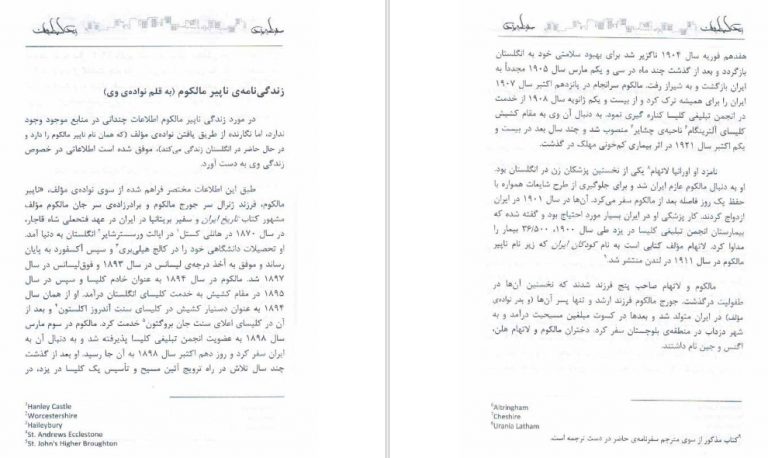 زندگی‌نامه‌ی ناپیر مالکوم (به قلم نواده‌ی وی)
در مورد زندگی ناپیر مالکوم اطلاعات چندانی در منابع موجود وجود
ندارد، اما نگارنده از طریق یافتن نواده‌ی مؤلف (که همان نام ناپیر مالکوم را دارد و
در حال حاضر در انگلستان زندگی می‌کند)، موفق شده است اطلاعاتی در خصوص
زندگی وی به دست آورد.
طبق این اطلاعات مختصر فراهم شده از سوی نواده‌ی مؤلف، «ناپیر
مالکوم، فرزند ژنرال سر جورج مالکوم و برادرزاده‌ی سر جان مالکوم مؤلف
مشهور کتاب تاریخ ایران و سفیر بریتانیا در ایران در عهد فتحعلی شاه قاجار،
در سال ۱۸۷۰ در هانلی کستل¹ در ایالت ورسسترشایر² انگلستان به دنیا آمد.
او تحصیلات دانشگاهی خود را در کالج هیلی‌بری³ و سپس آکسفورد به پایان
رساند و موفق به أخذ درجه‌ی لیسانس در سال ۱۸۹۳ و فوق‌لیسانس در سال
۱۸۹۷ شد. مالکوم در سال ۱۸۹۴ به عنوان خادم کلیسا و سپس در سال
۱۸۹۵ در مقام کشیش به خدمت کلیسای انگلستان درآمد. او از همان سال
۱۸۹۴ به عنوان دستیار کشیش در کلیسای سنت آندروز اکلستون⁴ و بعد از
آن در کلیسای اعلای سنت جان بروگتون⁵ خدمت کرد. مالکوم در سوم مارس
سال ۱۸۹۸ به عضویت انجمن تبلیغی کلیسا پذیرفته شد و به دنبال آن به
ایران سفر کرد و روز دهم اکتبر سال ۱۸۹۸ به آن جا رسید. او بعد از گذشت
چند سال تلاش در راه ترویج آئین مسیح و تأسیس یک کلیسا در یزد، در
¹Hanley Castle
²Worcestershire
³Haileybury
⁴St. Andrews Ecclestone
⁵St. John's Higher Broughton
هفدهم فوریه سال ۱۹۰۴ ناگزیر شد برای بهبود سلامتی خود به انگلستان
بازگردد و بعد از گذشت چند ماه در سی و یکم مارس سال ۱۹۰۵ مجدداً به
ایران بازگشت و به شیراز رفت. مالکوم سرانجام در پانزدهم اکتبر سال ۱۹۰۷
ایران را برای همیشه ترک کرد و از بیست و یکم ژانویه سال ۱۹۰۸ از خدمت
در انجمن تبلیغی کلیسا کناره گیری نمود. به دنبال آن وی به مقام کشیش
کلیسای آلترینگام⁶ ناحیه‌ی چشایر⁷ منصوب شد و چند سال بعد در بیست و
یکم اکتبر سال ۱۹۲۱ در اثر بیماری کم‌خونی مهلک در گذشت.
نامزد او اورانیا لاتهام⁸ یکی از نخستین پزشکان زن در انگلستان بود.
او به دنبال مالکوم عازم ایران شد و برای جلوگیری از طرح شایعات همواره با
حفظ یک روز فاصله بعد از مالکوم سفر می‌کرد. آن‌ها در سال ۱۹۰۱ در ایران
ازدواج کردند. کار پزشکی او در ایران بسیار مورد احتیاج بود و گفته شده که
بیمارستان انجمن تبلیغی کلیسا در یزد طی سال ۱۹۰۰، ۳۶/۵۰۰ بیمار را
مداوا کرد. لاتهام مؤلف کتابی است به نام کودکان ایران که زیر نام ناپیر
مالکوم در سال ۱۹۱۱ در لندن منتشر شد.⁸
مالکوم و لاتهام صاحب پنج فرزند شدند که نخستین آن‌ها در
طفولیت درگذشت. جورج مالکوم فرزند ارشد و تنها پسر آن‌ها (و پدر نواده‌ی
مؤلف) در ایران متولد شد و بعدها در کسوت مبلغین مسیحیت درآمد و به
شهر دزداب در منطقه‌ی بلوچستان سفر کرد. دختران مالکوم و لاتهام هلن،
اگنس و جین نام داشتند.
⁶Altringham
⁷Cheshire
⁸Urania Latham
⁸کتاب مذکور از سوی مترجم سفرنامه‌ی حاضر در دست ترجمه است.